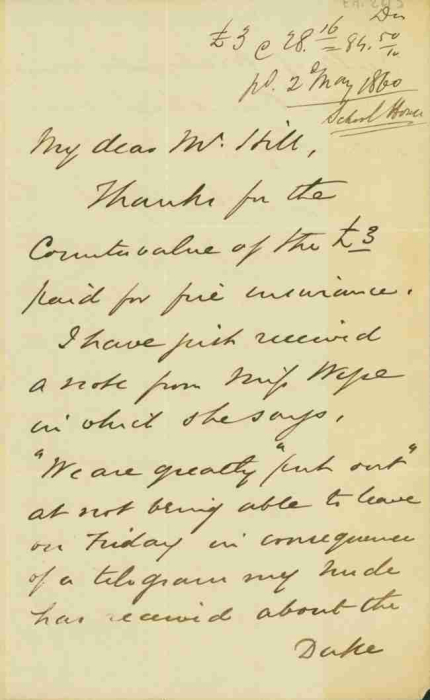 Dr
£3 @ 28.16 = 84.50
pd. 2d May 1860
School House
My dear Mr. Hill,
Thanks for the
Countervalue of the £3
paid for fire insurance.
I have just received
a note from Miss Wyse
in which she says,
"We are greatly "put out"
at not being able to leave
on Friday in consequence
of a telegram my Uncle
has received about the
Duke